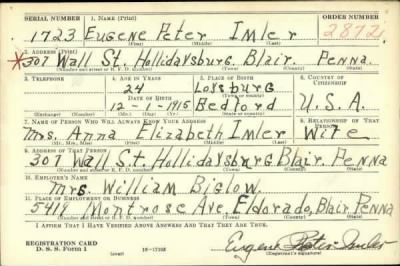 SERIAL NUMBER 1. NAME (Print) ORDER NUMBER
1723 Eugene Peter Imler 2872
(First) (Middle) (Last)
2. ADDRESS (Print)
X307 Wall St. Hollidaysburg Blair. Penna.
(Number and street or R. F. D. number) (Town) (County) (State)
3. TELEPHONE 4. AGE IN YEARS 5. PLACE OF BIRTH 6. COUNTRY OF CITIZENSHIP
24 Loysburg
DATE OF BIRTH (Town or county)
12-1-1915 Bedford U.S.A.
(Exchange) (Number) (Mo.) (Day) (Yr.) (State or country)
7. NAME OF PERSON WHO WILL ALWAYS KNOW YOUR ADDRESS 8. RELATIONSHIP OF THAT PERSON
Mrs. Anna Elizabeth Imler Wife
(Mr., Mrs., Miss) (First) (Middle) (Last)
9. ADDRESS OF THAT PERSON
307 Wall St. Hollidaysburg Blair. Penna
(Number and street or R. F. D. number) (Town) (County) (State)
10. EMPLOYER'S NAME
Mrs. William Biglow.
11. PLACE OF EMPLOYMENT OR BUSINESS
5419 Montrose Ave. Eldorado, Blair Penna
(Number and street or R. F. D. number) (Town) (County) (State)
I AFFIRM THAT I HAVE VERIFIED ABOVE ANSWERS AND THAT THEY ARE TRUE.
REGISTRATION CARD
D. S. S. Form 1 (over) Eugene Peter Imler
(Registrant's signature)